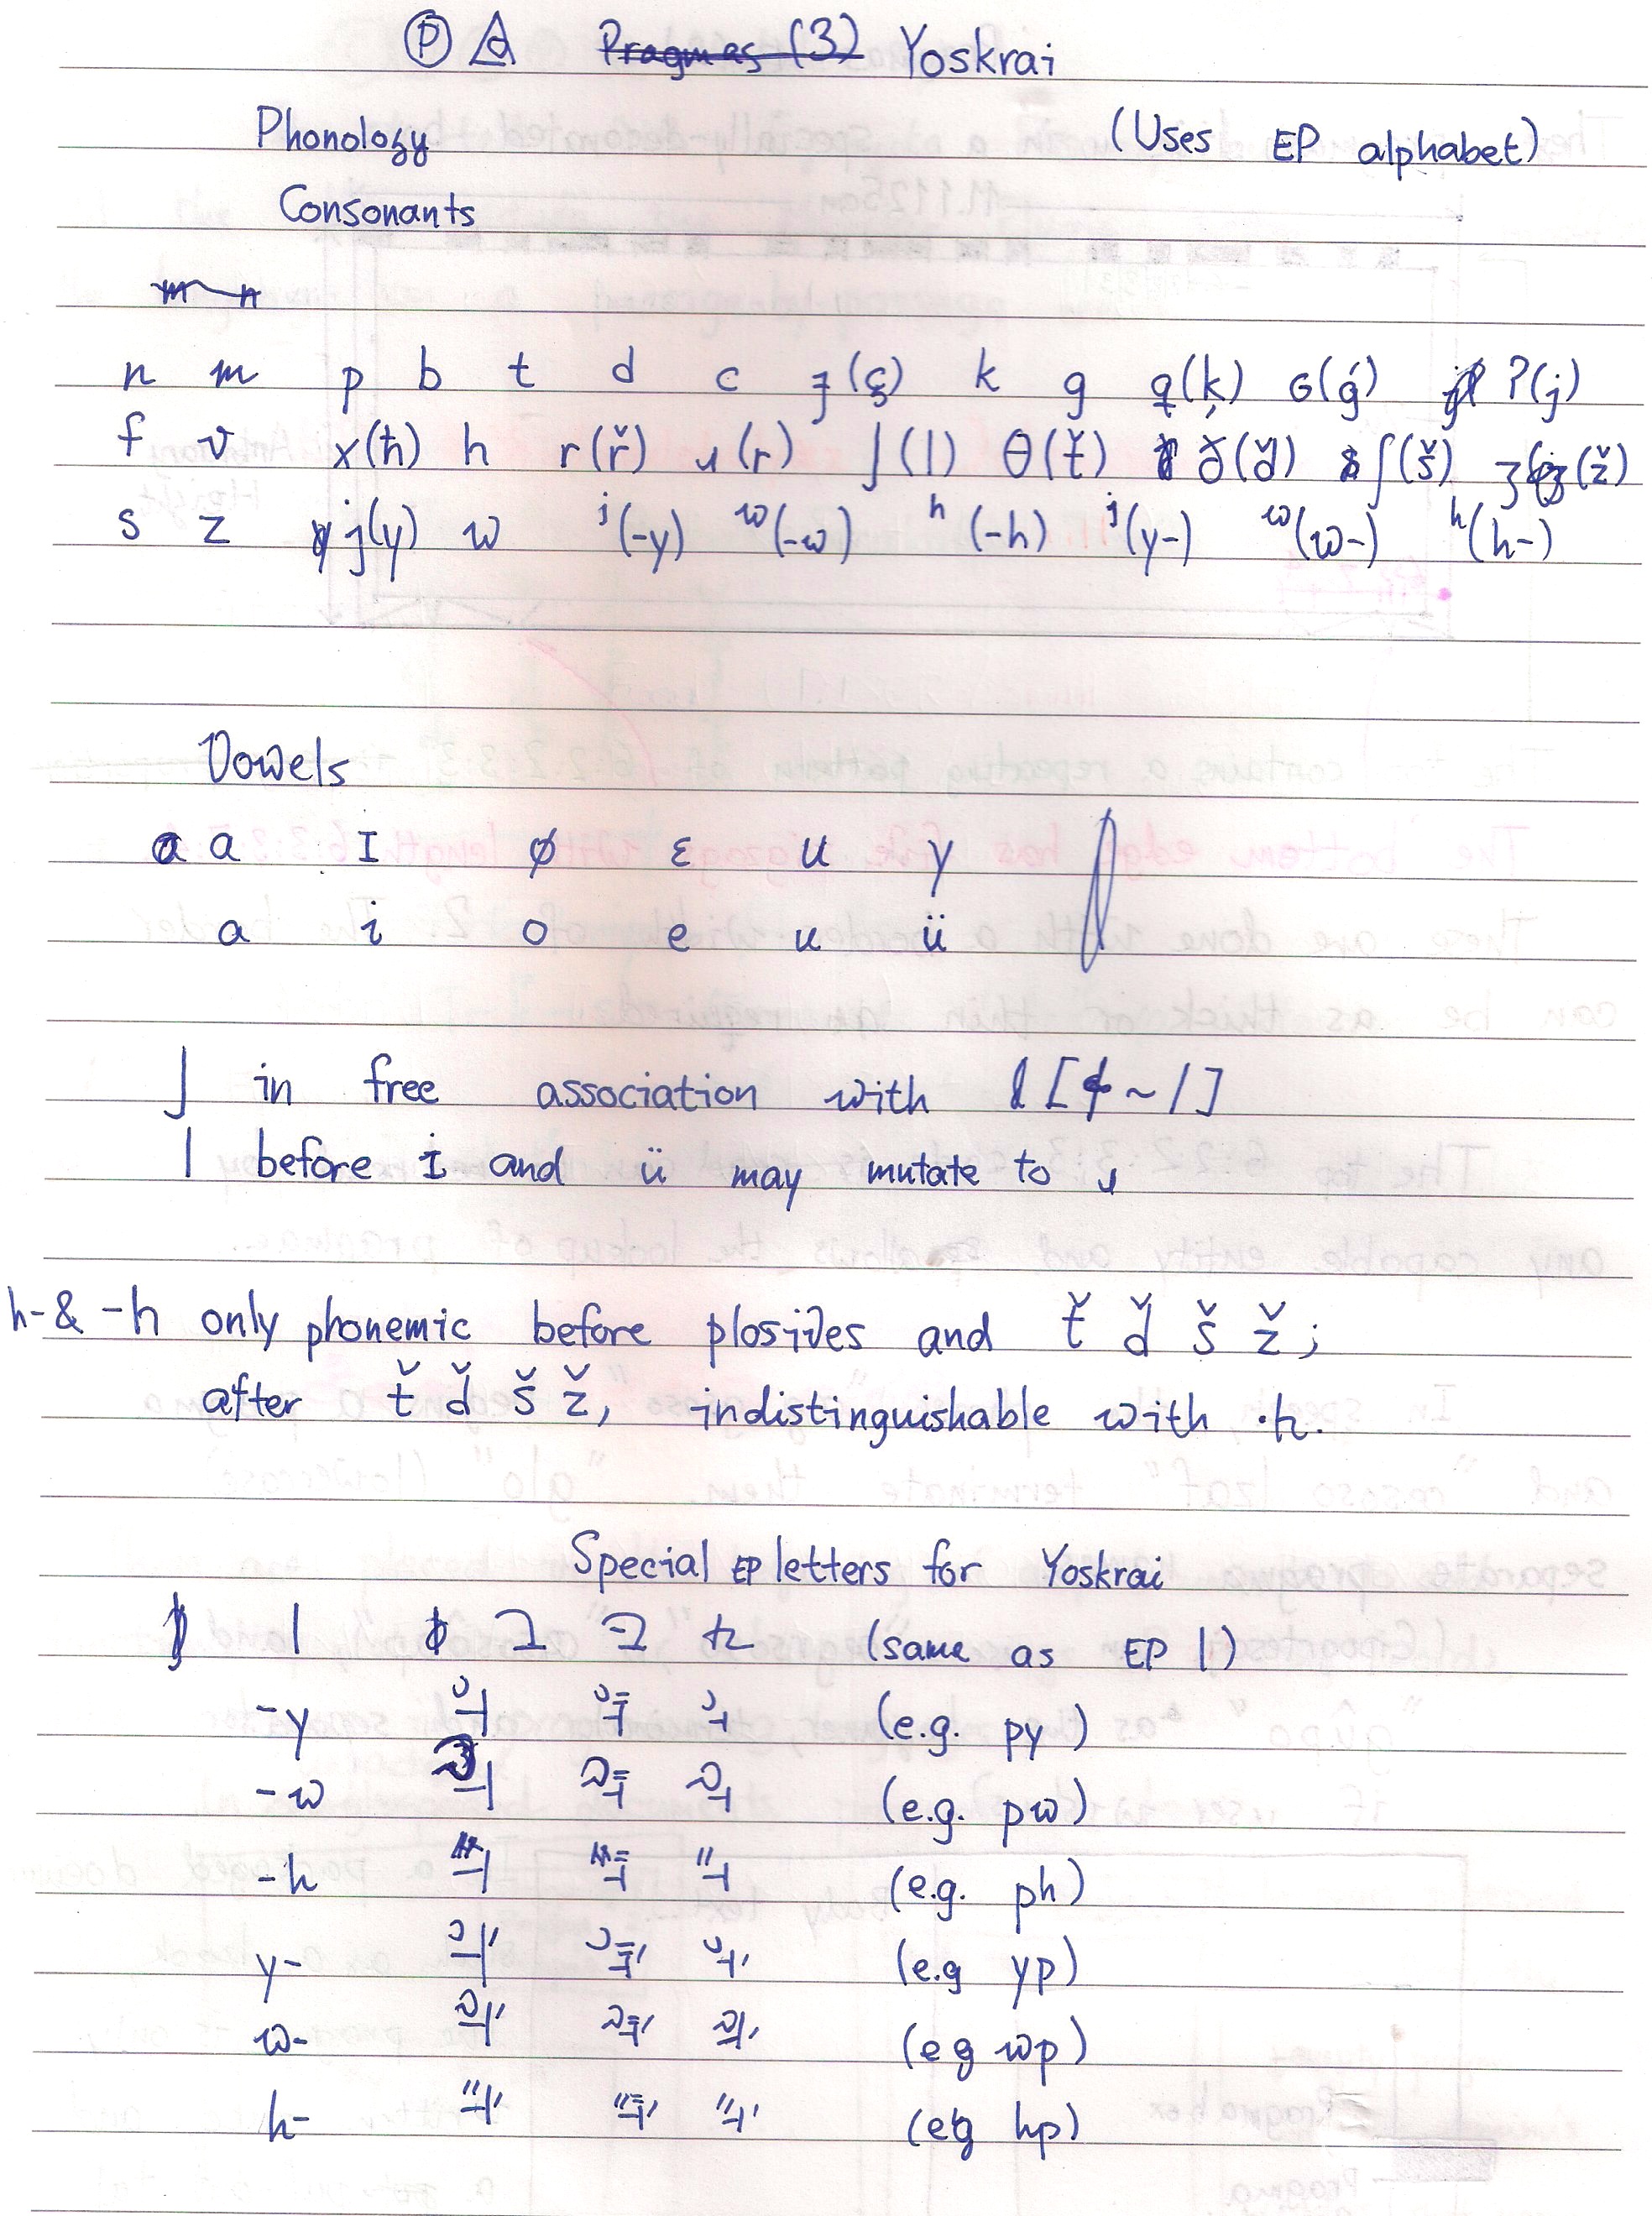 Ⓟ Yoskrai
Phonology (Uses EP alphabet)
Consonants
n m p b t d c ɟ(ç) k g q(ķ) ɢ(ǵ) ʔ(j)
f v x(ħ) h r(ř) ɹ(r) ʃ(l) θ(ť) ð(ď) ʃ(š) ʒ(ž)
s z j(y) w ʲ(-y) ʷ(-w) ʰ(-h) ʲ(y-) ʷ(w-) ʰ(h-)
Vowels
a ɪ ø ɛ u y
a i o e u ü
in free association with
l before i and ü may mutate to ɹ
h- & -h only phonemic before plosives and ť ď š ž;
after ť ď š ž, indistinguishable with ·h.
Special EP letters for Yoskrai
l (same as EP l)
-y (e.g. py)
-w (e.g. pw)
-h (e.g. ph)
y- (e.g yp)
w- (eg wp)
h- (eg hp)